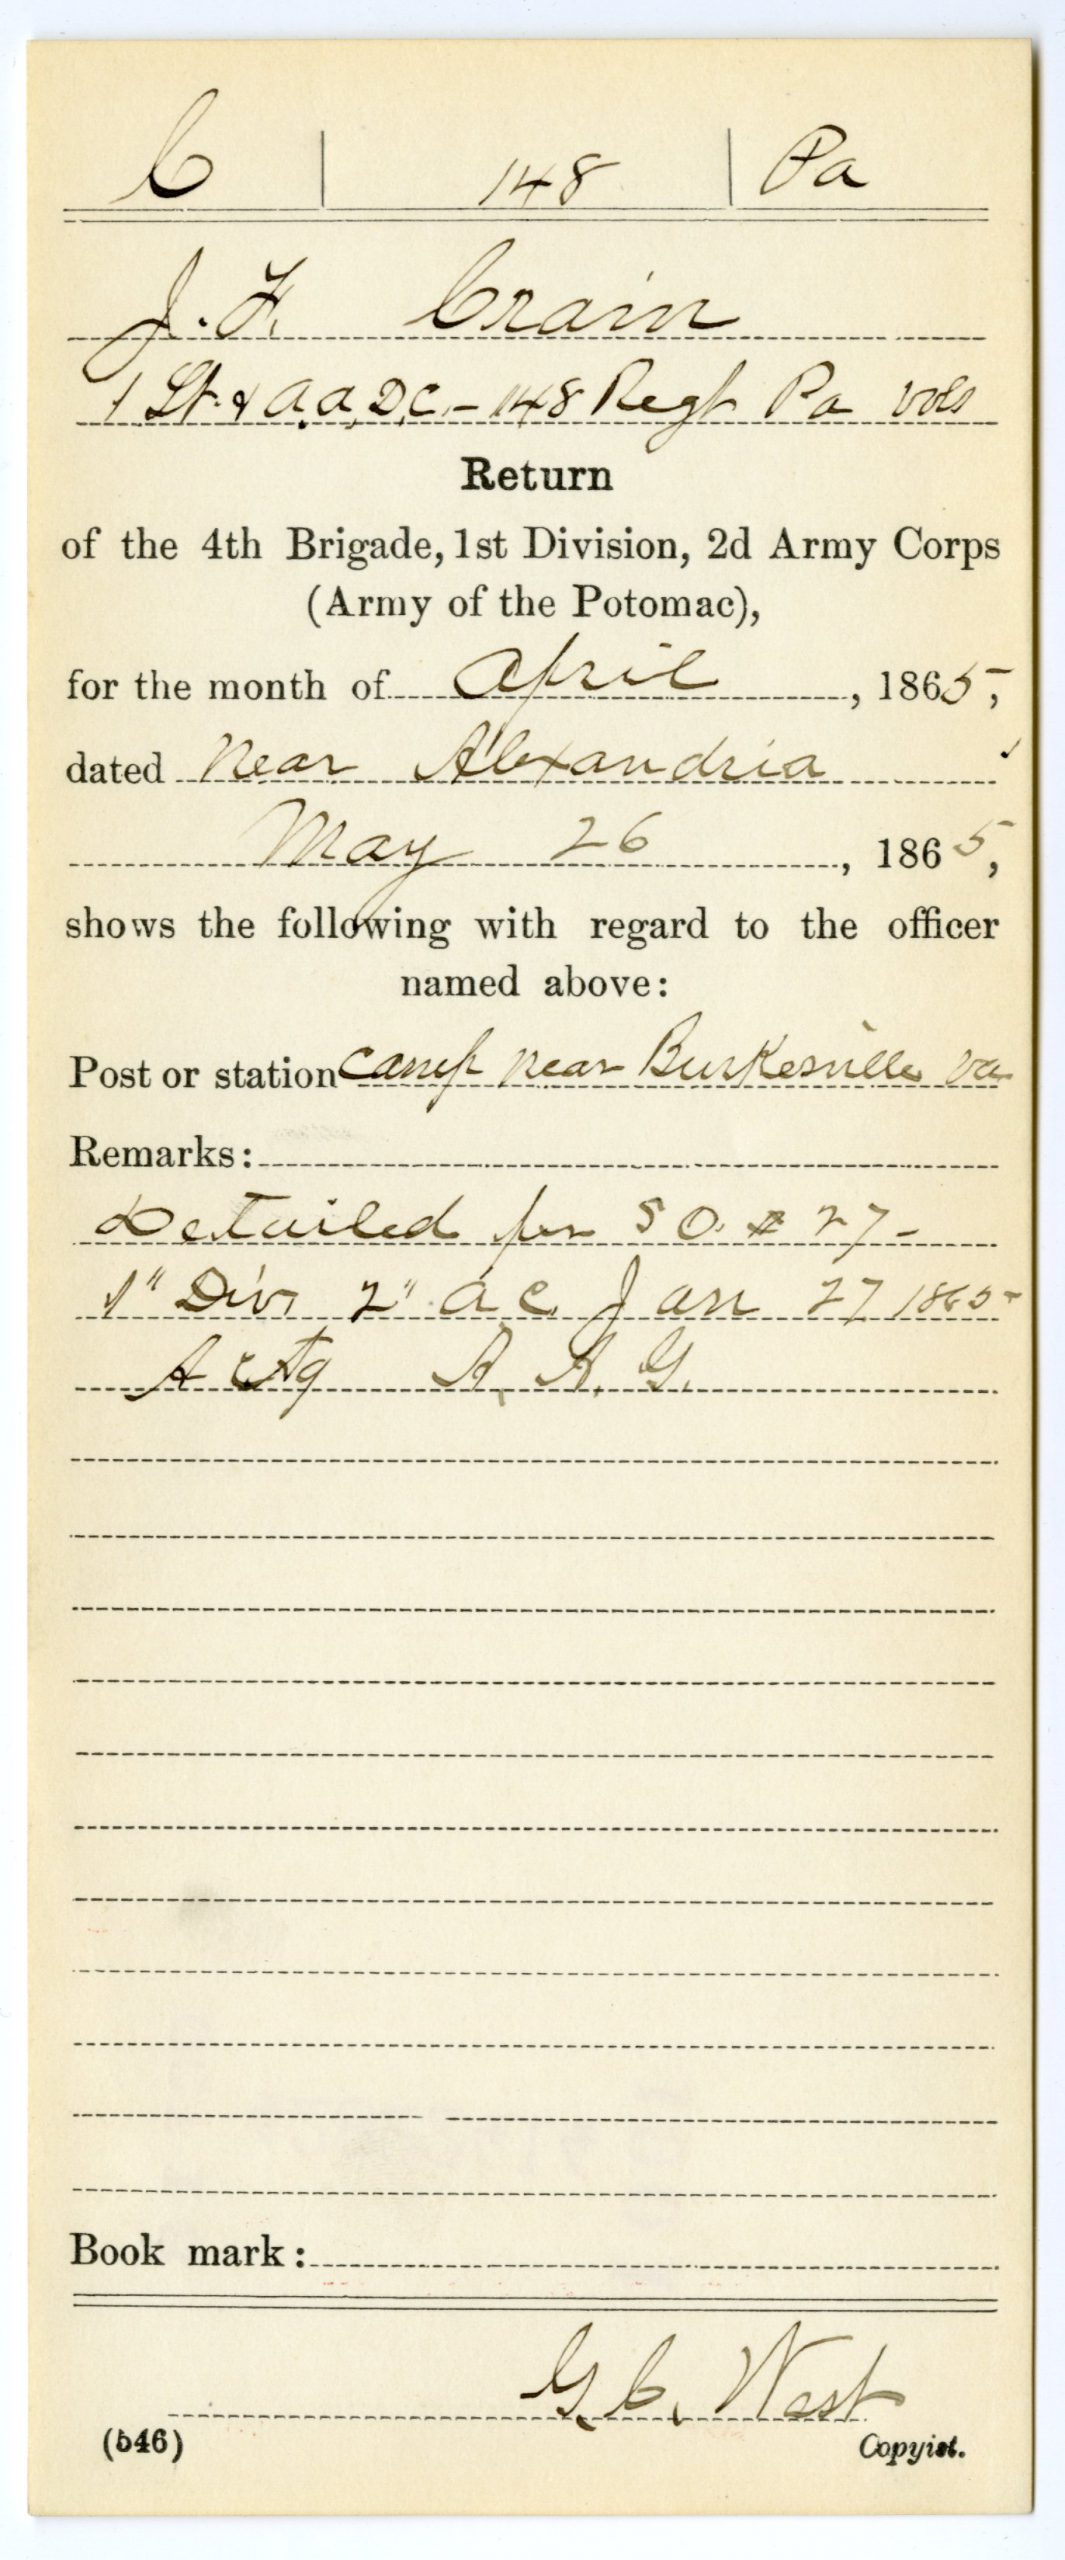 C 148 Pa
J. F. Crain
1 Lt. & A. A. D. C. - 148 Regt Pa Vols
Return
of the 4th Brigade, 1st Division, 2d Army Corps
(Army of the Potomac),
for the month of April, 1865,
dated Near Alexandria
May 26, 1865,
shows the following with regard to the officer
named above:
Post or station Camp near Burkesville Va
Remarks:
Detailed per S O. # 27-
1" Div 2" A C. Jan 27 1865-
Actg A. A. G.
Book mark:
G. C. West
(546) Copyist.